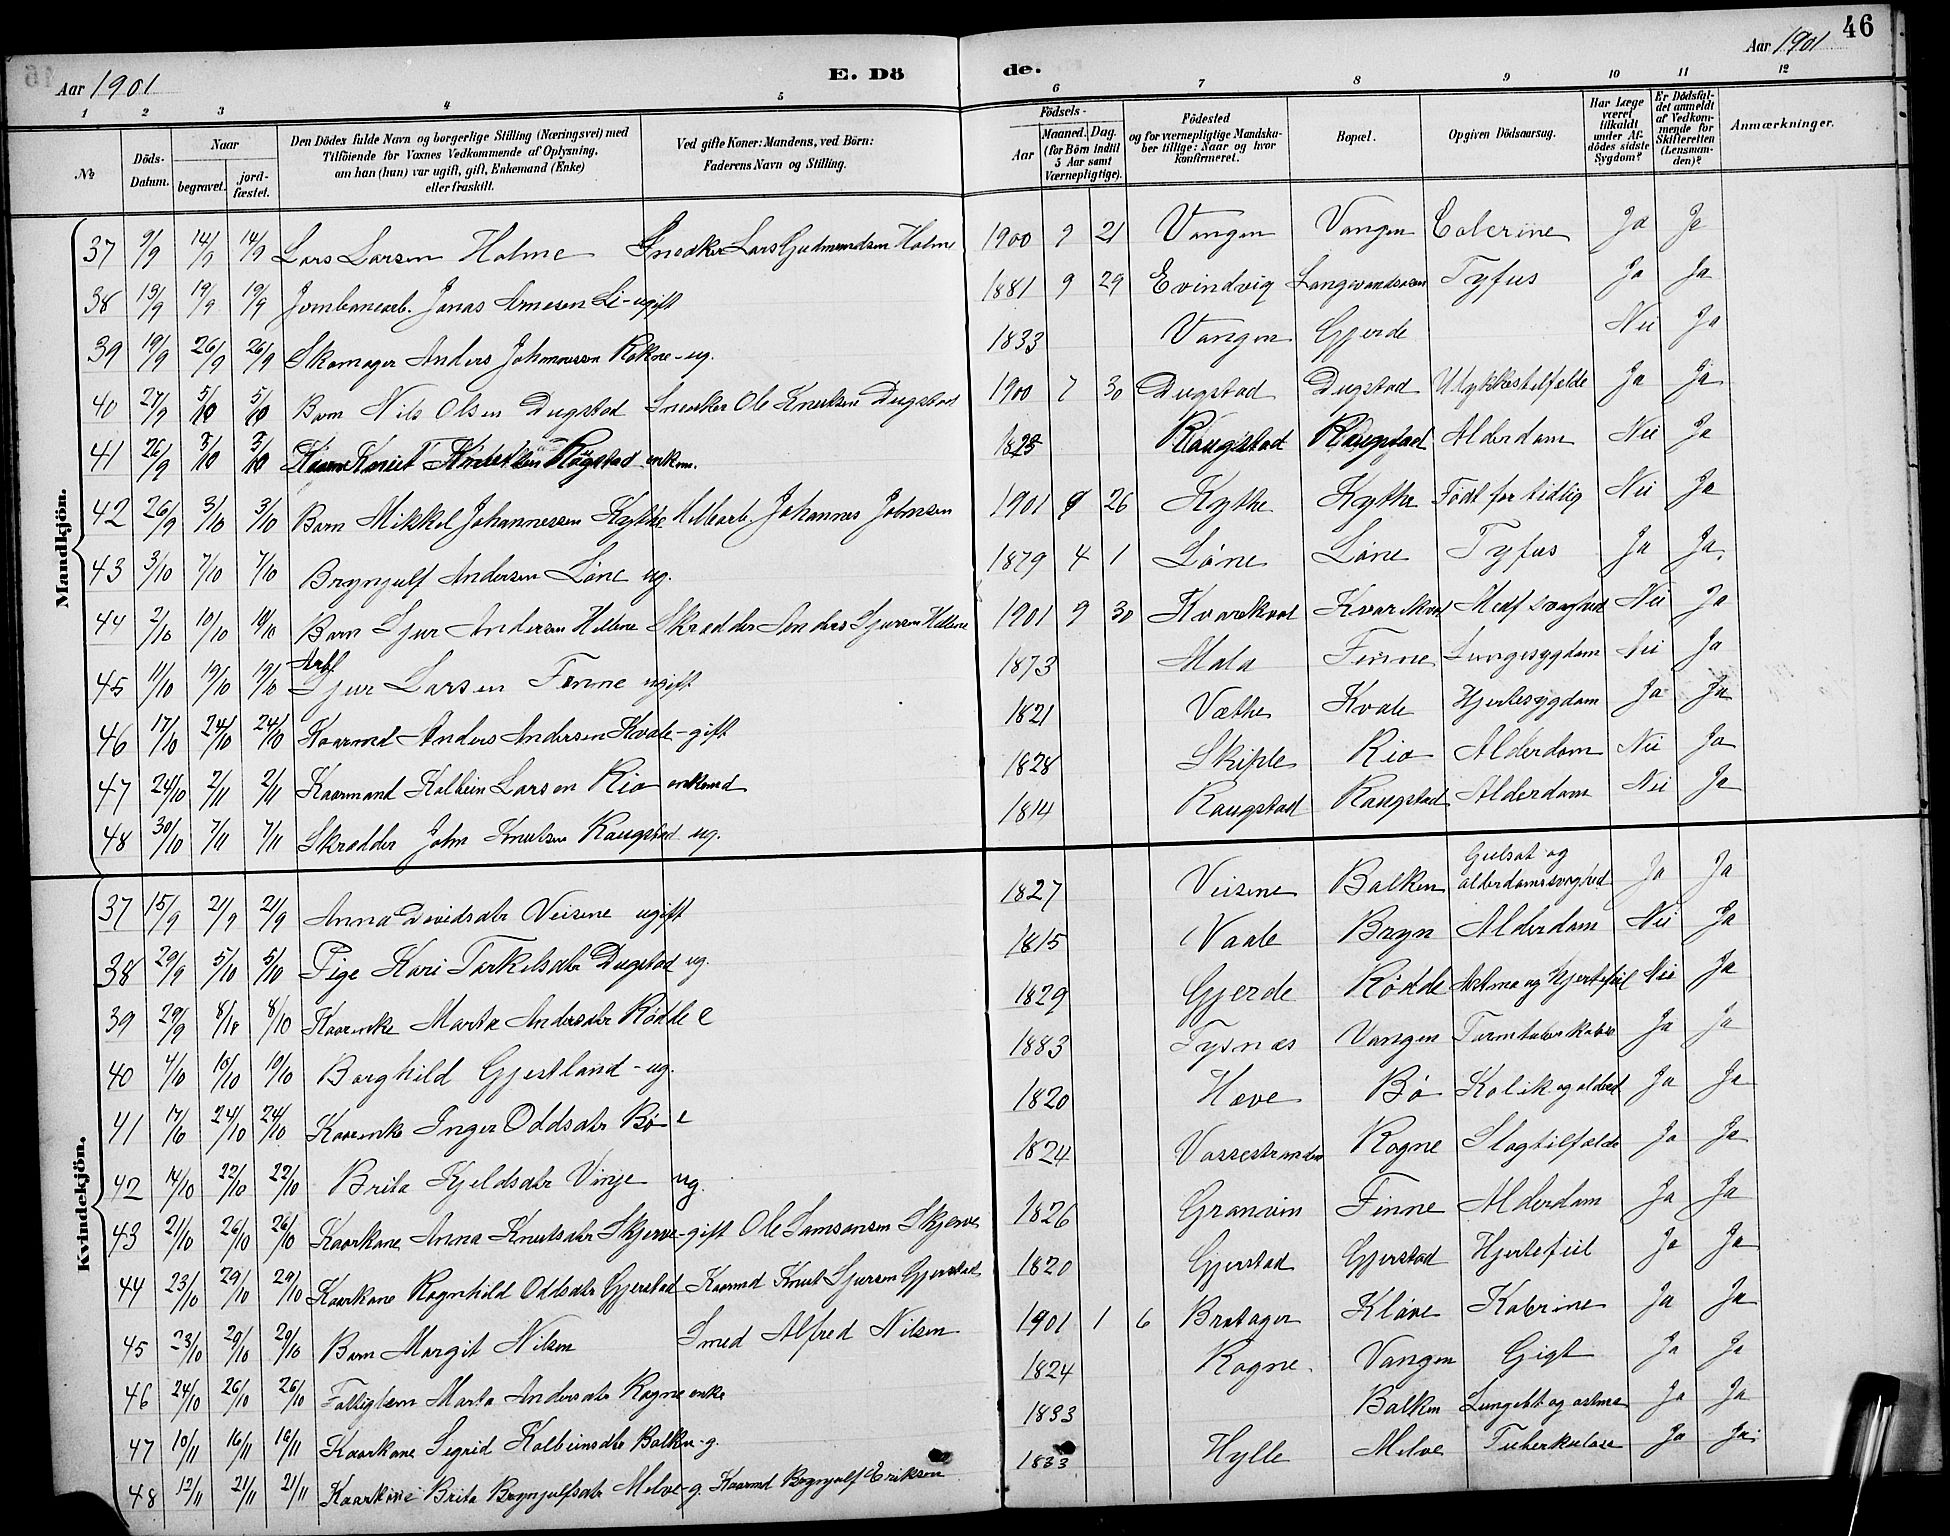 46
Aar 1901
E. Dö de.
Aar 1901
1 2 3 4 5 6 7 8 9 10 11 12
№
Döds-Datum.
Naar
begravet.
jord-fæstet.
Den Dödes fulde Navn og borgerlige Stilling (Næringsvei) med
Tilföiende for Voxnes Vedkommende af Oplysning,
om han (hun) var ugift, gift, Enkemand (Enke)
eller fraskilt.
Ved gifte Koner: Mandens, ved Börn:
Faderens Navn og Stilling.
Födsels-
Aar
Maaned. Dag.
(for Börn indtil
5 Aar samt
Værnepligtige).
Födested
og for værnepligtige Mandska-
ber tillige: Naar og hvor
konfirmeret.
Bopæl.
Opgiven Dödsaarsag.
Har Læge
været
tilkaldt
under Af-
dödes sidste
Sygdom?
Er Dödsfal-
det anmeldt
af Vedkom-
mende for
Skifteretten
(Lensman-
den)?
Anmærkninger.
Mandkjön.
37 9/9 14/9 14/9 Lars Larsen Holme Snedker Lars Gudmundsen Holme 1900 9 21 Vangen Vangen Colerine Ja Ja
38 13/9 19/9 19/9 Jernbanearb. Jonas Arnesen Li - ugift 1881 9 29 Evindvig Langevandsosen Tyfus Ja Ja
39 19/9 26/9 26/9 Skomager Anders Johannessen Rokne - ug. 1833 Vangen Gjerde Nei Ja
40 27/9 5/10 5/10 Barn Nils Olsen Dugstad Snedker Ole Knutsen Dugstad 1900 7 30 Dugstad Dugstad Ulykkestilfelde Ja Ja
41 26/9 3/10 3/10 Knut Knutsen Røgstad enkm. 1825 Raugstad Raugstad Alderdom Nei Ja
42 26/9 3/10 3/10 Barn Mikkel Johannessen Kythe Johannes Johnsen 1901 9 26 Kythe Kythe Født for tidlig Nei Ja
43 3/10 7/10 7/10 Brynjulf Andersen Løne ug. 1879 4 1 Løne Løne Tyfus Ja Ja.
44 2/10 10/10 10/10 Barn Sjur Andersen Hellene Skrædder Anders Sjursen Hellene 1901 9 30 Kvarekval Kvarekval Medf svaghed Nei Ja
45 11/10 19/10 19/10 Arbf Sjur Larsen Finne ugift 1873 Mala Finne Lungesygdom Nei Ja
46 17/10 24/10 24/10 Kaarmd Anders Andersen Kvale - gift 1821 Væthe Kvale Hjertesygdom Ja Ja
47 24/10 2/11 2/11 Kaarmand Kolbein Larsen Rio enkemd 1828 Skiple Rio Alderdom Nei Ja
48 30/10 7/11 7/11 Skrædder John Knutsen Raugstad ug. 1814 Raugstad Raugstad Alderdom Nei Ja
Kvindekjön.
37 15/9 21/9 21/9 Anna Davidsdtr Veisene ugift 1827 Veisene Balken Gulsot og alderdomssvaghed Ja Ja
38 29/9 5/10 5/10 Pige Kari Torkelsdtr Dugstad ug. 1815 Vaale Bryn Alderdom Nei Ja
39 29/9 8/10 8/10 Kaarenke Marta Andersdtr Rødde e 1829 Gjerde Rødde Astma og Hjertefeil Nei Ja
40 4/10 10/10 10/10 Borghild Gjestland - ug. 1883 Tysnæs Vangen Tarmtuberkulose Ja Ja
41 17/10 24/10 24/10 Kaarenke Inger Oddsdtr Bø e 1820 Hæve Bø Kolik og alderd Ja Ja
42 14/10 22/10 22/10 Brita Kjeldsdtr Vinje ug. 1824 Vossestranden Rogne Slagtilfælde Ja Ja
43 21/10 26/10 26/10 Kaarkone Anna Knutsdtr Skjerve - gift Ole Samsonsen Skjerve 1826 Granvin Finne Alderdom Ja Ja
44 23/10 29/10 29/10 Kaarkone Ragnhild Oddsdtr Gjerstad Kaarmd Knut Sjursen Gjerstad 1820 Gjerstad Gjerstad Hjertefeil Ja Ja
45 23/10 29/10 29/10 Barn Margit Nilsen Smed Alfred Nilsen 1901 1 6 Bratager Kløve Kolerine Ja Ja
46 24/10 26/10 26/10 Fattiglem Marta Andersdtr Rogne enke 1824 Rogne. Vangen Gigt Ja Ja
47 10/11 16/11 16/11 Kaarkone Sigrid Kolbeinsdtr Balken - g. 1833 Balken Lungebet og astma Ja Ja
48 12/11 21/11 21/11 Kaarkone Brita Brynjulfsdtr Melve - g. Kaarmd Brynjulf Eriksen 1833 Hylle Melve Tuberkulose Ja Ja.